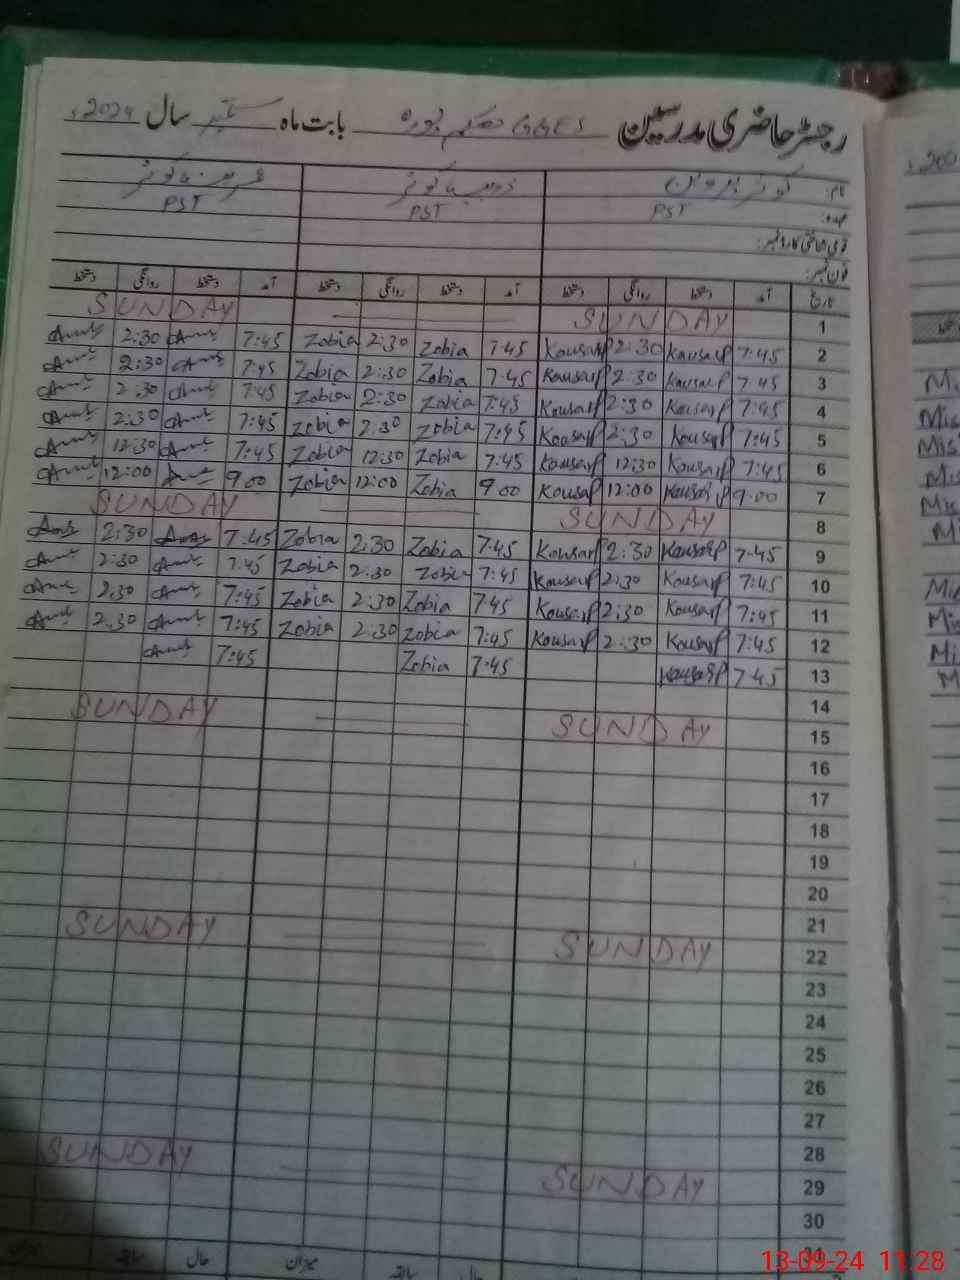 رجسٹر حاضری مدرسین GGES حکیم پورہ بابت ماہ ستمبر سال 2024ء
نام: کوثر پروین زوبیہ کوثر
عہدہ: PST PST PST
قومی شناختی کارڈ نمبر:
فون نمبر:
تاریخ آمد دستخط روانگی دستخط آمد دستخط روانگی دستخط آمد دستخط روانگی دستخط
1 SUNDAY SUNDAY
2 7:45 Kousar P 2:30 Kousar P 7:45 Zobia 2:30 Zobia 7:45 2:30
3 7:45 Kousar P 2:30 Kousar P 7:45 Zobia 2:30 Zobia 7:45 2:30
4 7:45 Kousar P 2:30 Kousar P 7:45 Zobia 2:30 Zobia 7:45 2:30
5 7:45 Kousar P 2:30 Kousar P 7:45 Zobia 2:30 Zobia 7:45 2:30
6 7:45 Kousar P 12:30 Kousar P 7:45 Zobia 12:30 Zobia 7:45 12:30
7 9:00 Kousar P 12:00 Kousar P 9:00 Zobia 12:00 Zobia 9:00 12:00
8 SUNDAY SUNDAY
9 7:45 Kousar P 2:30 Kousar P 7:45 Zobia 2:30 Zobia 7:45 2:30
10 7:45 Kousar P 2:30 Kousar P 7:45 Zobia 2:30 Zobia 7:45 2:30
11 7:45 Kousar P 2:30 Kousar P 7:45 Zobia 2:30 Zobia 7:45 2:30
12 7:45 Kousar P 2:30 Kousar P 7:45 Zobia 2:30 Zobia 7:45 2:30
13 7:45 Kousar P 7:45 Zobia 7:45
14
15 SUNDAY SUNDAY
16
17
18
19
20
21
22 SUNDAY SUNDAY
23
24
25
26
27
28
29 SUNDAY SUNDAY
30
31
میزان سابقہ حال میزان سابقہ حال
13-09-24 11:28